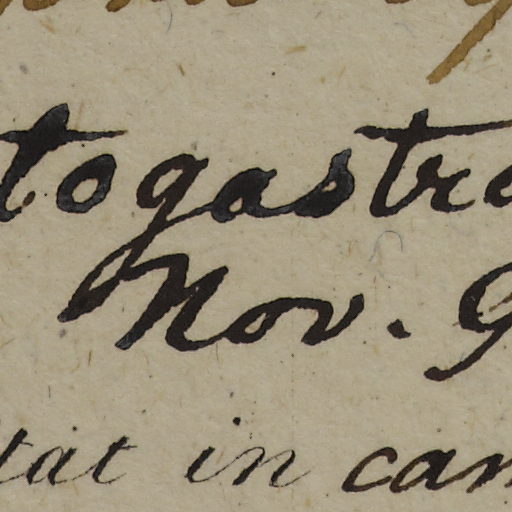 togastra
Nov. G
tat in cam